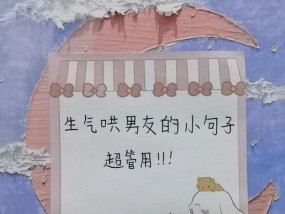 生气哄男友的小句子
超管用!!!